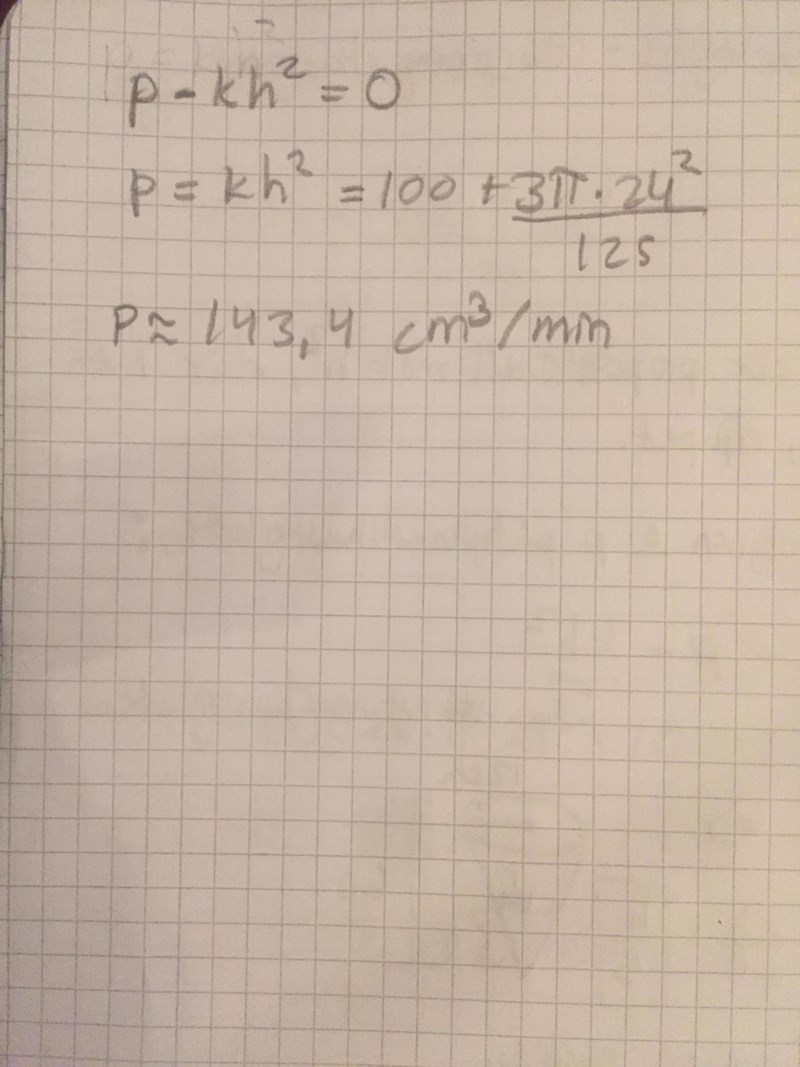 p - kh² = 0
p = kh² = 100 + 3π · 24² / 125
P ≈ 143,4 cm³/min